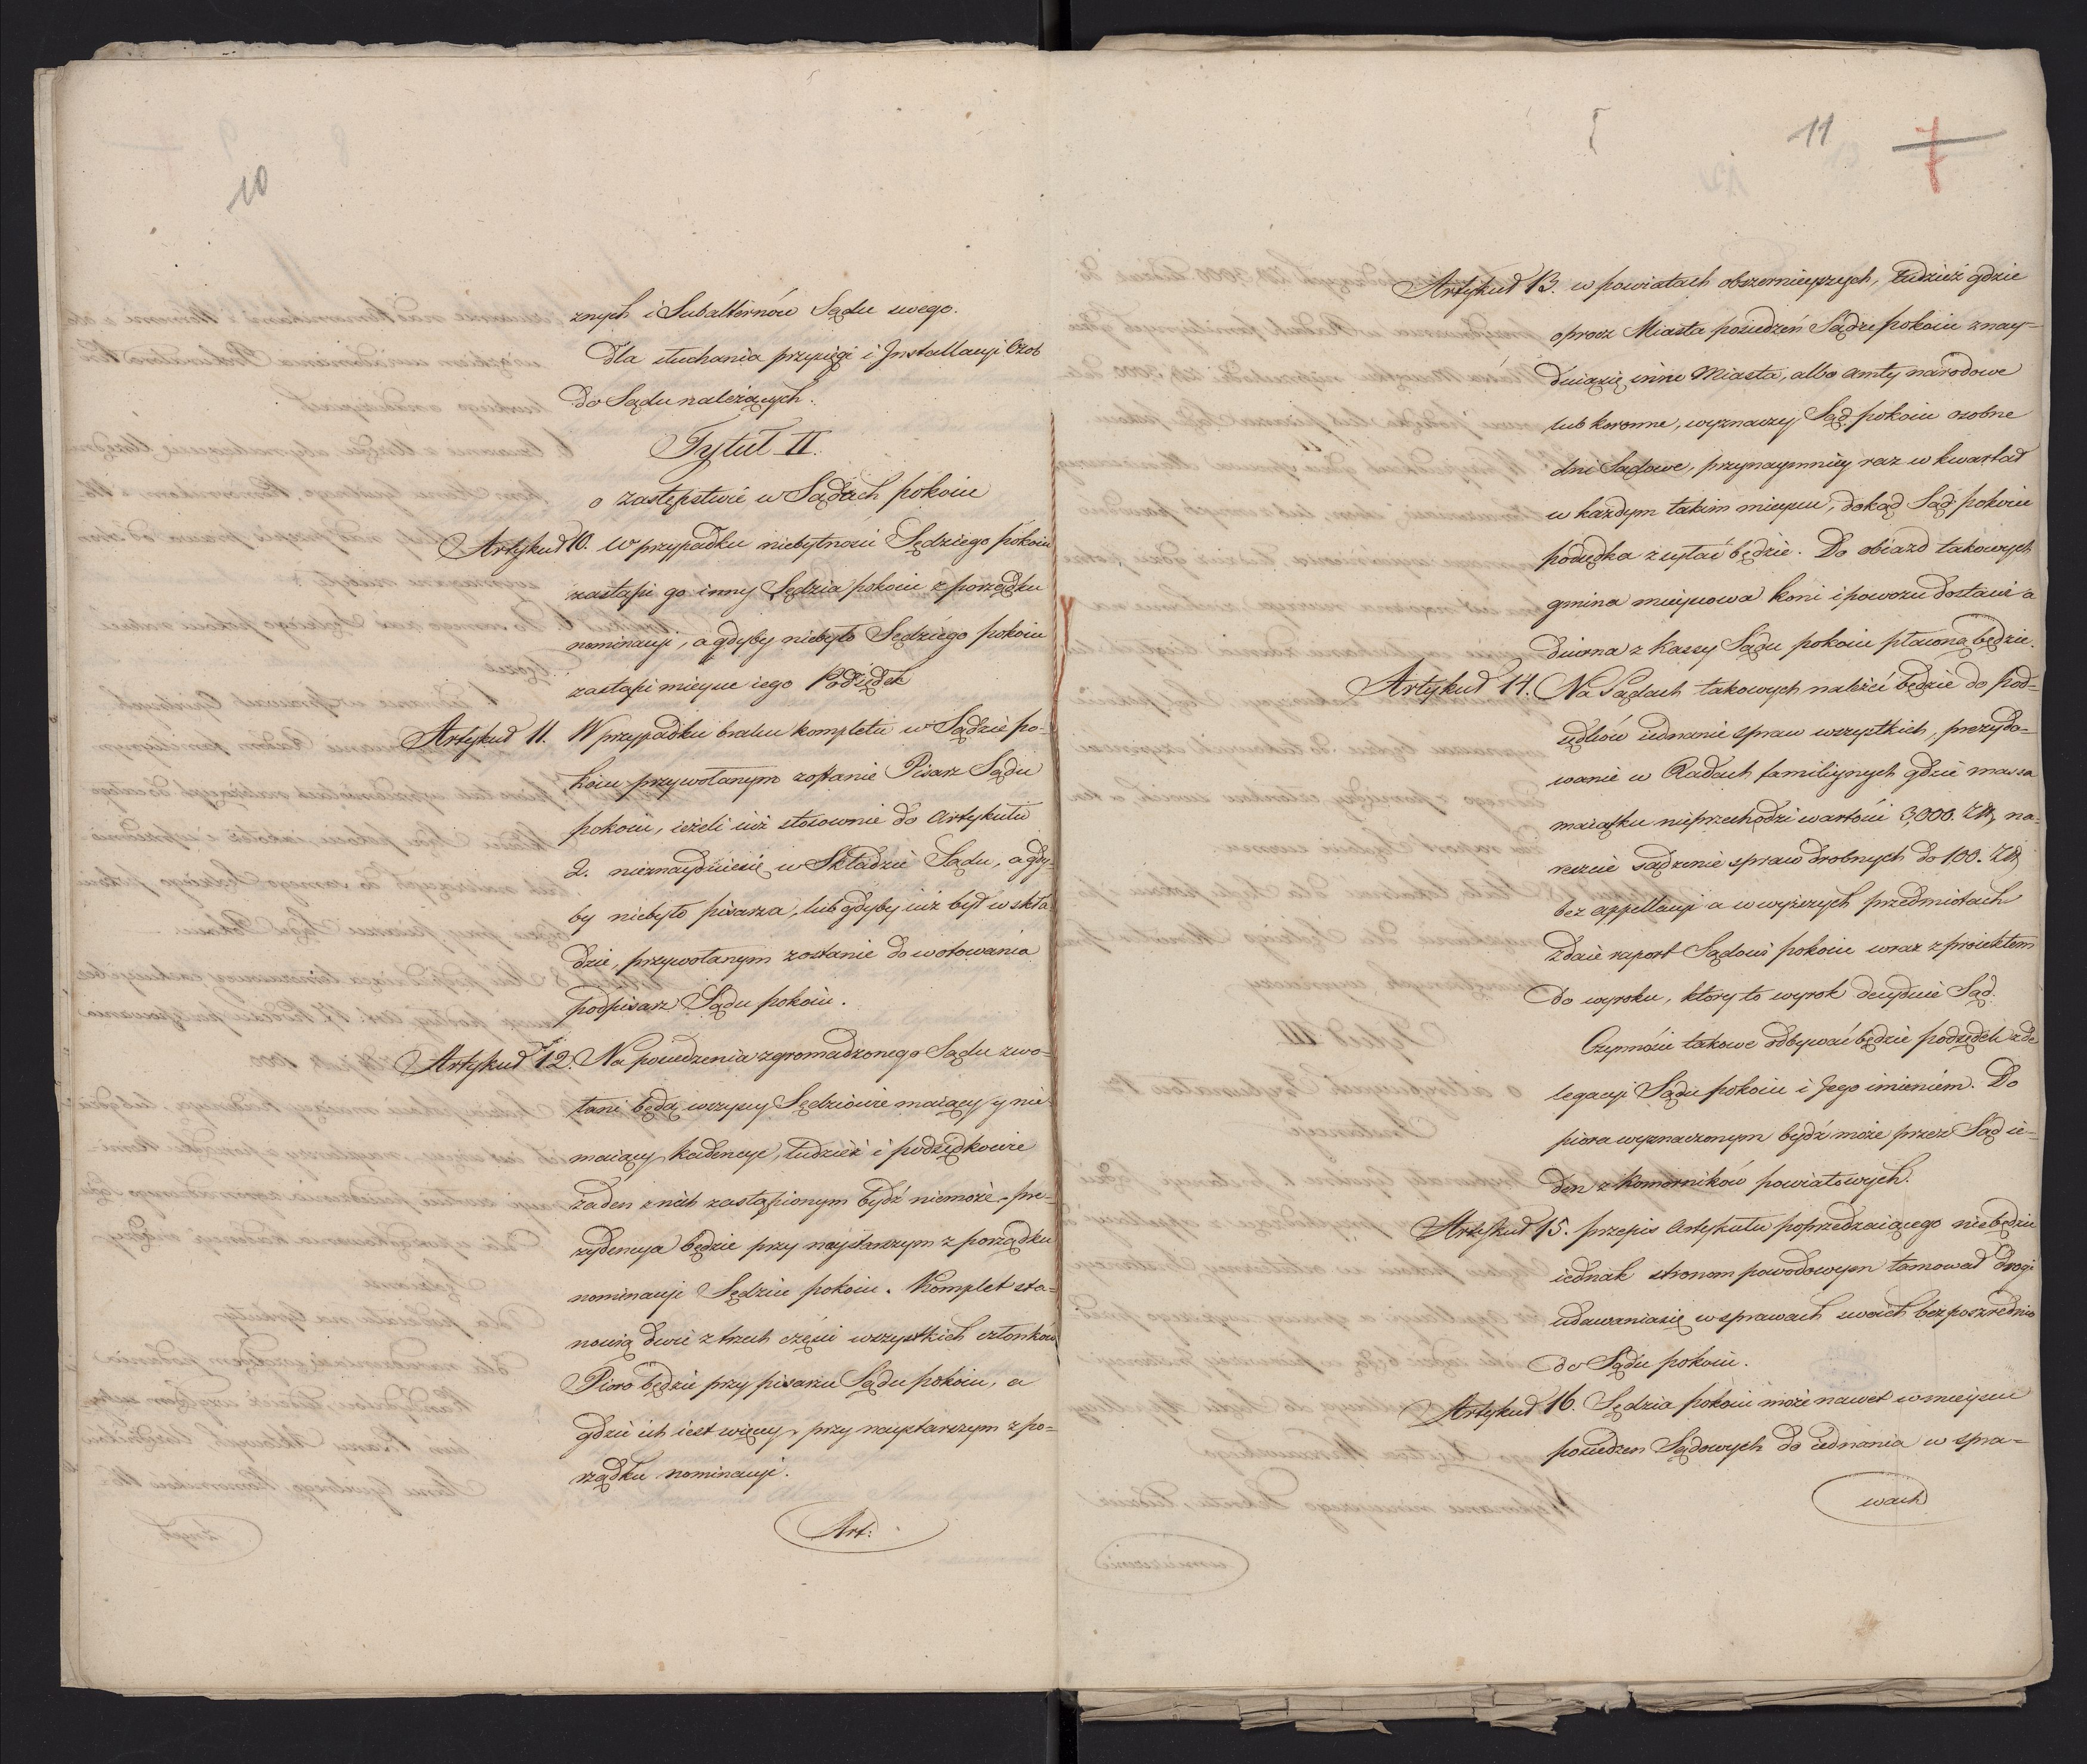 10
znych i Subalternów Sądu swego.
Dla słuchania przysięgi i Installacyi Osób
do Sądu należących.
Tytuł II.
o zastępstwie w Sądach pokoiu
Artykuł 10. W przypadku niebytności Sędziego pokoiu
zastąpi go inny Sędzia pokoiu z porządku
nominacyi, a gdyby niebyło Sędziego pokoiu
zastąpi mieysce iego Podsędek
Artykuł 11. W przypadku braku kompletu w Sądzie po-
koiu przywołanym zostanie Pisarz Sądu
pokoiu, ieżeli iuż stosownie do Artykułu
2. nieznayduiesię w Składzie Sądu, a gdy-
by niebyło pisarza, lub gdyby iuż był w skła-
dzie, przywołanym zostanie do wotowania
podpisarz Sądu pokoiu.
Artykuł 12. Na posiedzenia zgromadzonego Sądu zwo-
łani będą wszyscy Sędziowie maiący y nie
maiący kadencye, tudzież i podsędkowie
żaden z nich zastąpionym bydź niemoże, pre-
zydencya będzie przy naystarszym z porządku
nominacyi Sędziu pokoiu. Komplet sta-
nowią dwie z trzech części wszystkich członków
Pioro będzie przy pisarzu Sądu pokoiu, a
gdzie ich iest więcey, przy naystarszym z po-
rządku nominacyi.
Art:
11
7
Artykuł 13. w powiatach obszernieyszych, tudzież gdzie
oprocz Miasta posiedzeń Sądu pokoiu znay-
duiąsię inne Miasta, albo Amty narodowe
lub koronne, wyznaczy Sąd pokoiu osobne
dni Sądowe, przynaymniey raz w kwartał
w każdym takim mieyscu, dokąd Sąd pokoiu
podsędka zsyłać będzie. Do obiazd takowych
gmina mieyscowa koni i powozu dostawi a
dwiorna z kassy Sądu pokoiu płaconą będzie.
Artykuł 14. Na Sądach takowych należeć będzie do Pod-
sędków iednanie spraw wszystkich, prezydo-
wanie w Radach familiynych gdzie massa
maiątku nieprzechodzi wartości 3,000. Złł, na-
reszcie sądzenie spraw drobnych do 100. Złł
bez appellacyi a w wyższych przedmiotach
zdaie raport Sądowi pokoiu wraz z proiektem
do wyroku, który to wyrok decyduie Sąd.
Czynności takowe odbywać będzie podsędek z de
legacyi Sądu pokoiu i Jego imieniem. Do
piora wyznaczonym bydź może przez Sąd ie-
den z komorników powiatowych.
Artykuł 15. przepis Artykułu poprzedzaiącego niebędzie
iednak stronom powodowym tamował drogi
udawaniasię w sprawach swoich bezpośrednio
do Sądu pokoiu.
Artykuł 16. Sędzia pokoiu może nawet w mieyscu
posiedzen Sądowych do iednania w spra-
wach